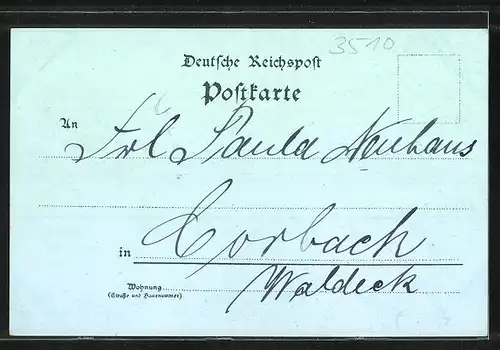 3510
Deutsche Reichspost
Postkarte
An
Frl Paula Neuhaus
in Corbach
Waldeck
Wohnung
(Straße und Hausnummer)